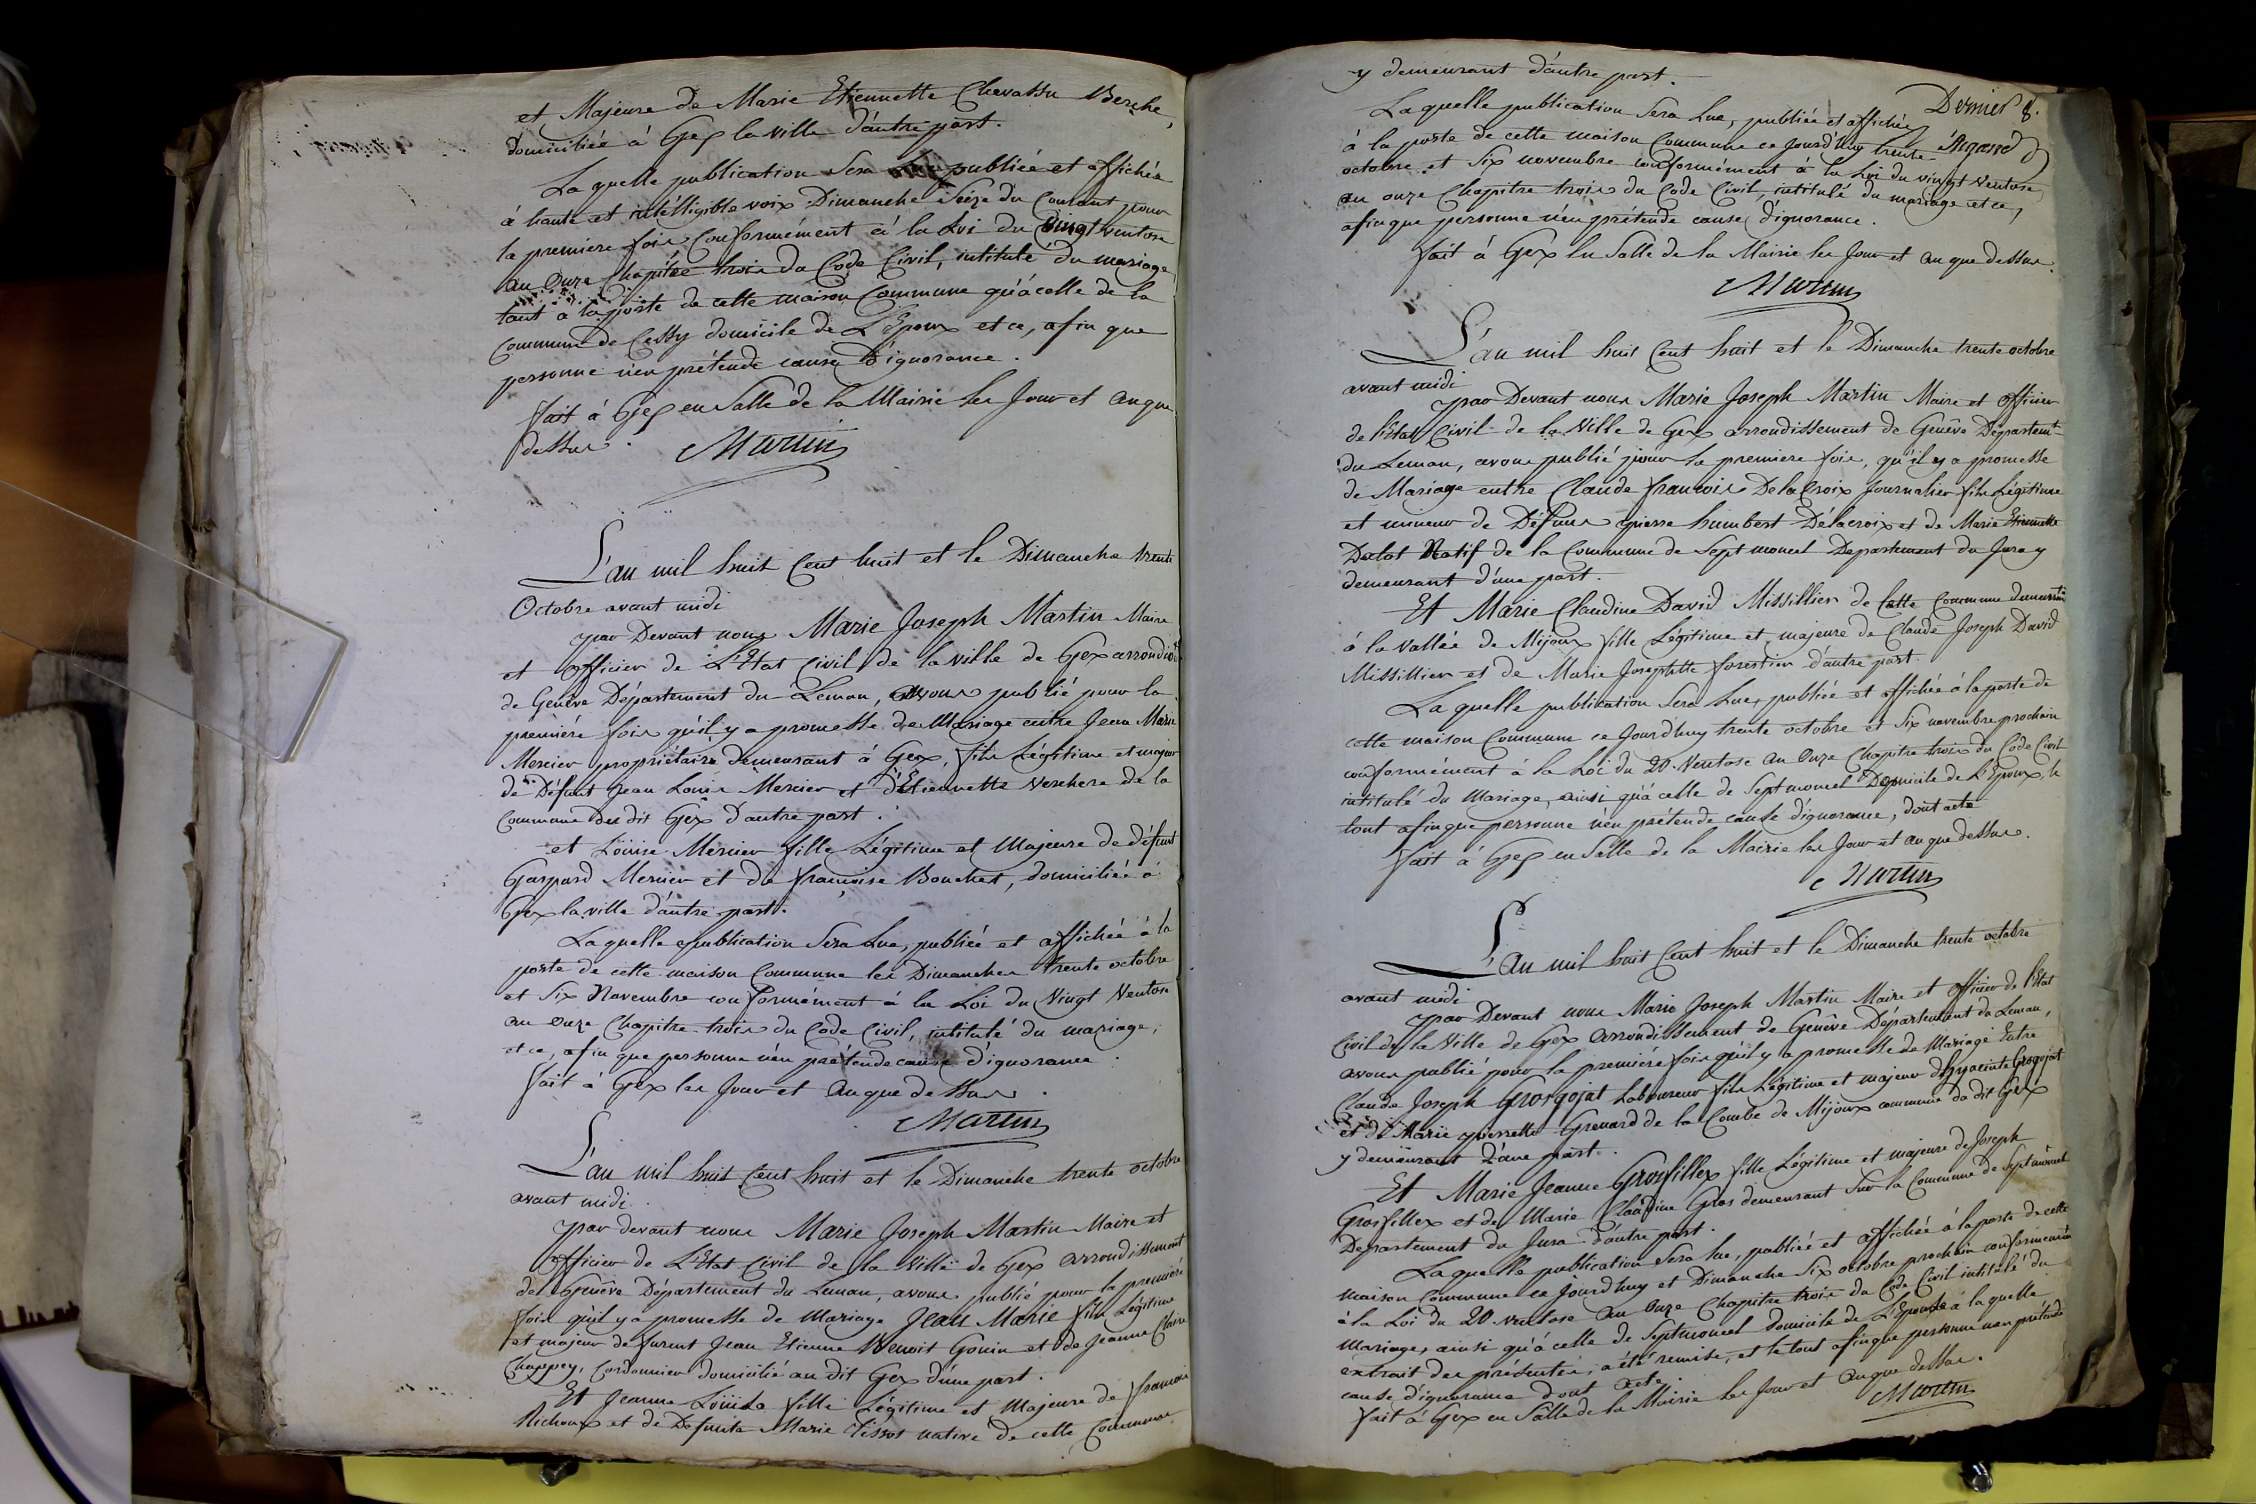 et Majeure de Marie Etiennette Chevassu Berche,
domiciliée à Gex la ville d'autre part.
La quelle publication Sera publiée et affichée
à haute et intélligible voix Dimanche Seize du Courant pour
la premiere fois Conformément à la Loi du Vingt Ventose
an Onze Chapitre trois du Code Civil, intitulé du mariage
tant à la porte de cette maison Commune qu'à celle de la
Commune de Cessy domicile de L'Epoux et ce, afin que
personne n'en prétende cause d'ignorance.
fait à Gex en Salle de la Mairie les Jour et an que
dessus.
Martin
L'an mil huit Cent huit et le Dimanche trente
Octobre avant midi
par Devant nous Marie Joseph Martin Maire
et officier de L'Etat Civil de la ville de Gex arrondist
de Genêve Département du Leman, avons publié pour la
premiére fois qu'il y a promesse de Mariage entre Jean Marie
Mercier propriétaire demeurant à Gex, fils Légitime et majeur
de Défunt Jean Louis Mercier et d'Etiennette Verchere de la
Commune du dit Gex d'autre part.
et Löuise Mercier fille Légitime et Majeure de défunt
Gaspard Mercier et de françoise Bouchet, domiciliée à
Gex la ville d'autre part.
La quelle publication Sera Lue, publiée et affichée à la
porte de cette maison Commune les Dimanches trente octobre
et Six Novembre conformément à la Loi du Vingt Ventose
an onze Chapitre trois du Code Civil, intitulé du mariage,
et ce, afin que personne n'en prétende cause d'ignorance.
fait à Gex les Jour et an que dessus.
Martin
L'an mil huit Cent huit et le Dimanche trente octobre
avant midi.
par devant nous Marie Joseph Martin Maire et
officier de L'Etat Civil de la Ville de Gex arrondissement
de Genêve Département du Leman, avons publié pour la premiere
fois qu'il y a promesse de Mariage Jean Marie fils Légitime
et majeur de furent Jean Etienne Benoit Gonin et de Jeanne Claire
Chappey, Cordonnier domicilié au dit Gex d'une part.
Et Jeanne Löuise fille Légitime et Majeure de françois
Richoux et de Defunte Marie Tissot native de cette Commune
y demeurant d'autre part.
Dernier 8.
La quelle publication Sera Lue, publiée et affichée
à la porte de cette maison Commune ce Jourd'huy trente
octobre et Six novembre conformément à la Loi du vingt Ventose
an onze Chapitre trois du Code Civil, intitulé du mariage et ce,
afin que personne n'en prétende cause d'ignorance.
fait à Gex en Salle de la Mairie les Jour et an que dessus.
Martin
L'an mil huit Cent huit et le Dimanche trente octobre
avant midi
par Devant nous Marie Joseph Martin Maire et officier
de l'Etat Civil de la Ville de Gex arrondissement de Genêve Départemt
du Leman, avons publié pour la premiere fois, qu'il y a promesse
de Mariage entre Claude françois Delacroix Journalier fils Légitime
et mineur de Défunt pierre humbert Délacroix et de Marie Etiennette
Dalot Natif de la Commune de Sept moncel Departement du Jura y
demeurant d'une part.
Et Marie Claudine David Missillier de Cette Commune demeurante
à la Vallée de Mijoux fille Légitime et majeure de Claude Joseph David
Missillier et de Marie Josephtte forestier d'autre part.
La quelle publication Sera Lue, publiée et affichée à la porte de
cette maison Commune ce Jourd'huy trente octobre et Six novembre prochain
conformément à la Loi du 20 Ventose an Onze Chapitre trois du Code Civil
intitulé du Mariage, ainsi qu'à celle de Septmoncel Domicile de L'Epoux, le
tout afin que personne n'en prétende cause d'ignorance, dont acte
fait à Gex en Salle de la Mairie les Jour et an que dessus.
Martin
L'an mil huit Cent huit et le Dimanche trente octobre
avant midi
par Devant nous Marie Joseph Martin Maire et officier de l'Etat
Civil de la Ville de Gex arrondissement de Genêve Département du Leman,
avons publié pour la premiére fois qu'il y a promesse de Mariage Entre
Claude Joseph Grosgojat Laboureur fils Légitime et majeur d'hyacinte Grosgojat
et de Marie pierrette Grenard de la Combe de Mijoux commune du dit Gex
y demeurant d'une part.
Et Marie Jeanne Grosfillex fille Légitime et majeure de Joseph
Grosfillex et de Marie Claudine Gros demeurant Sur la Commune de Septmoncel
Departement du Jura d'autre part.
La quelle publication Sera lue, publiée et affichée à la porte de cette
maison Commune ce Jourd'huy et Dimanche Six octobre prochain conformement
à la Loi du 20 Ventose an Onze Chapitre trois du Code Civil intitulé du
Mariage, ainsi qu'à celle de Septmoncel domicile de L'Epouse à la quelle
extrait des présentes, a été remise, et le tout afin que personne n'en prétende
cause d'ignorance dont acte.
fait à Gex en Salle de la Mairie les Jour et an que dessus.
Martin